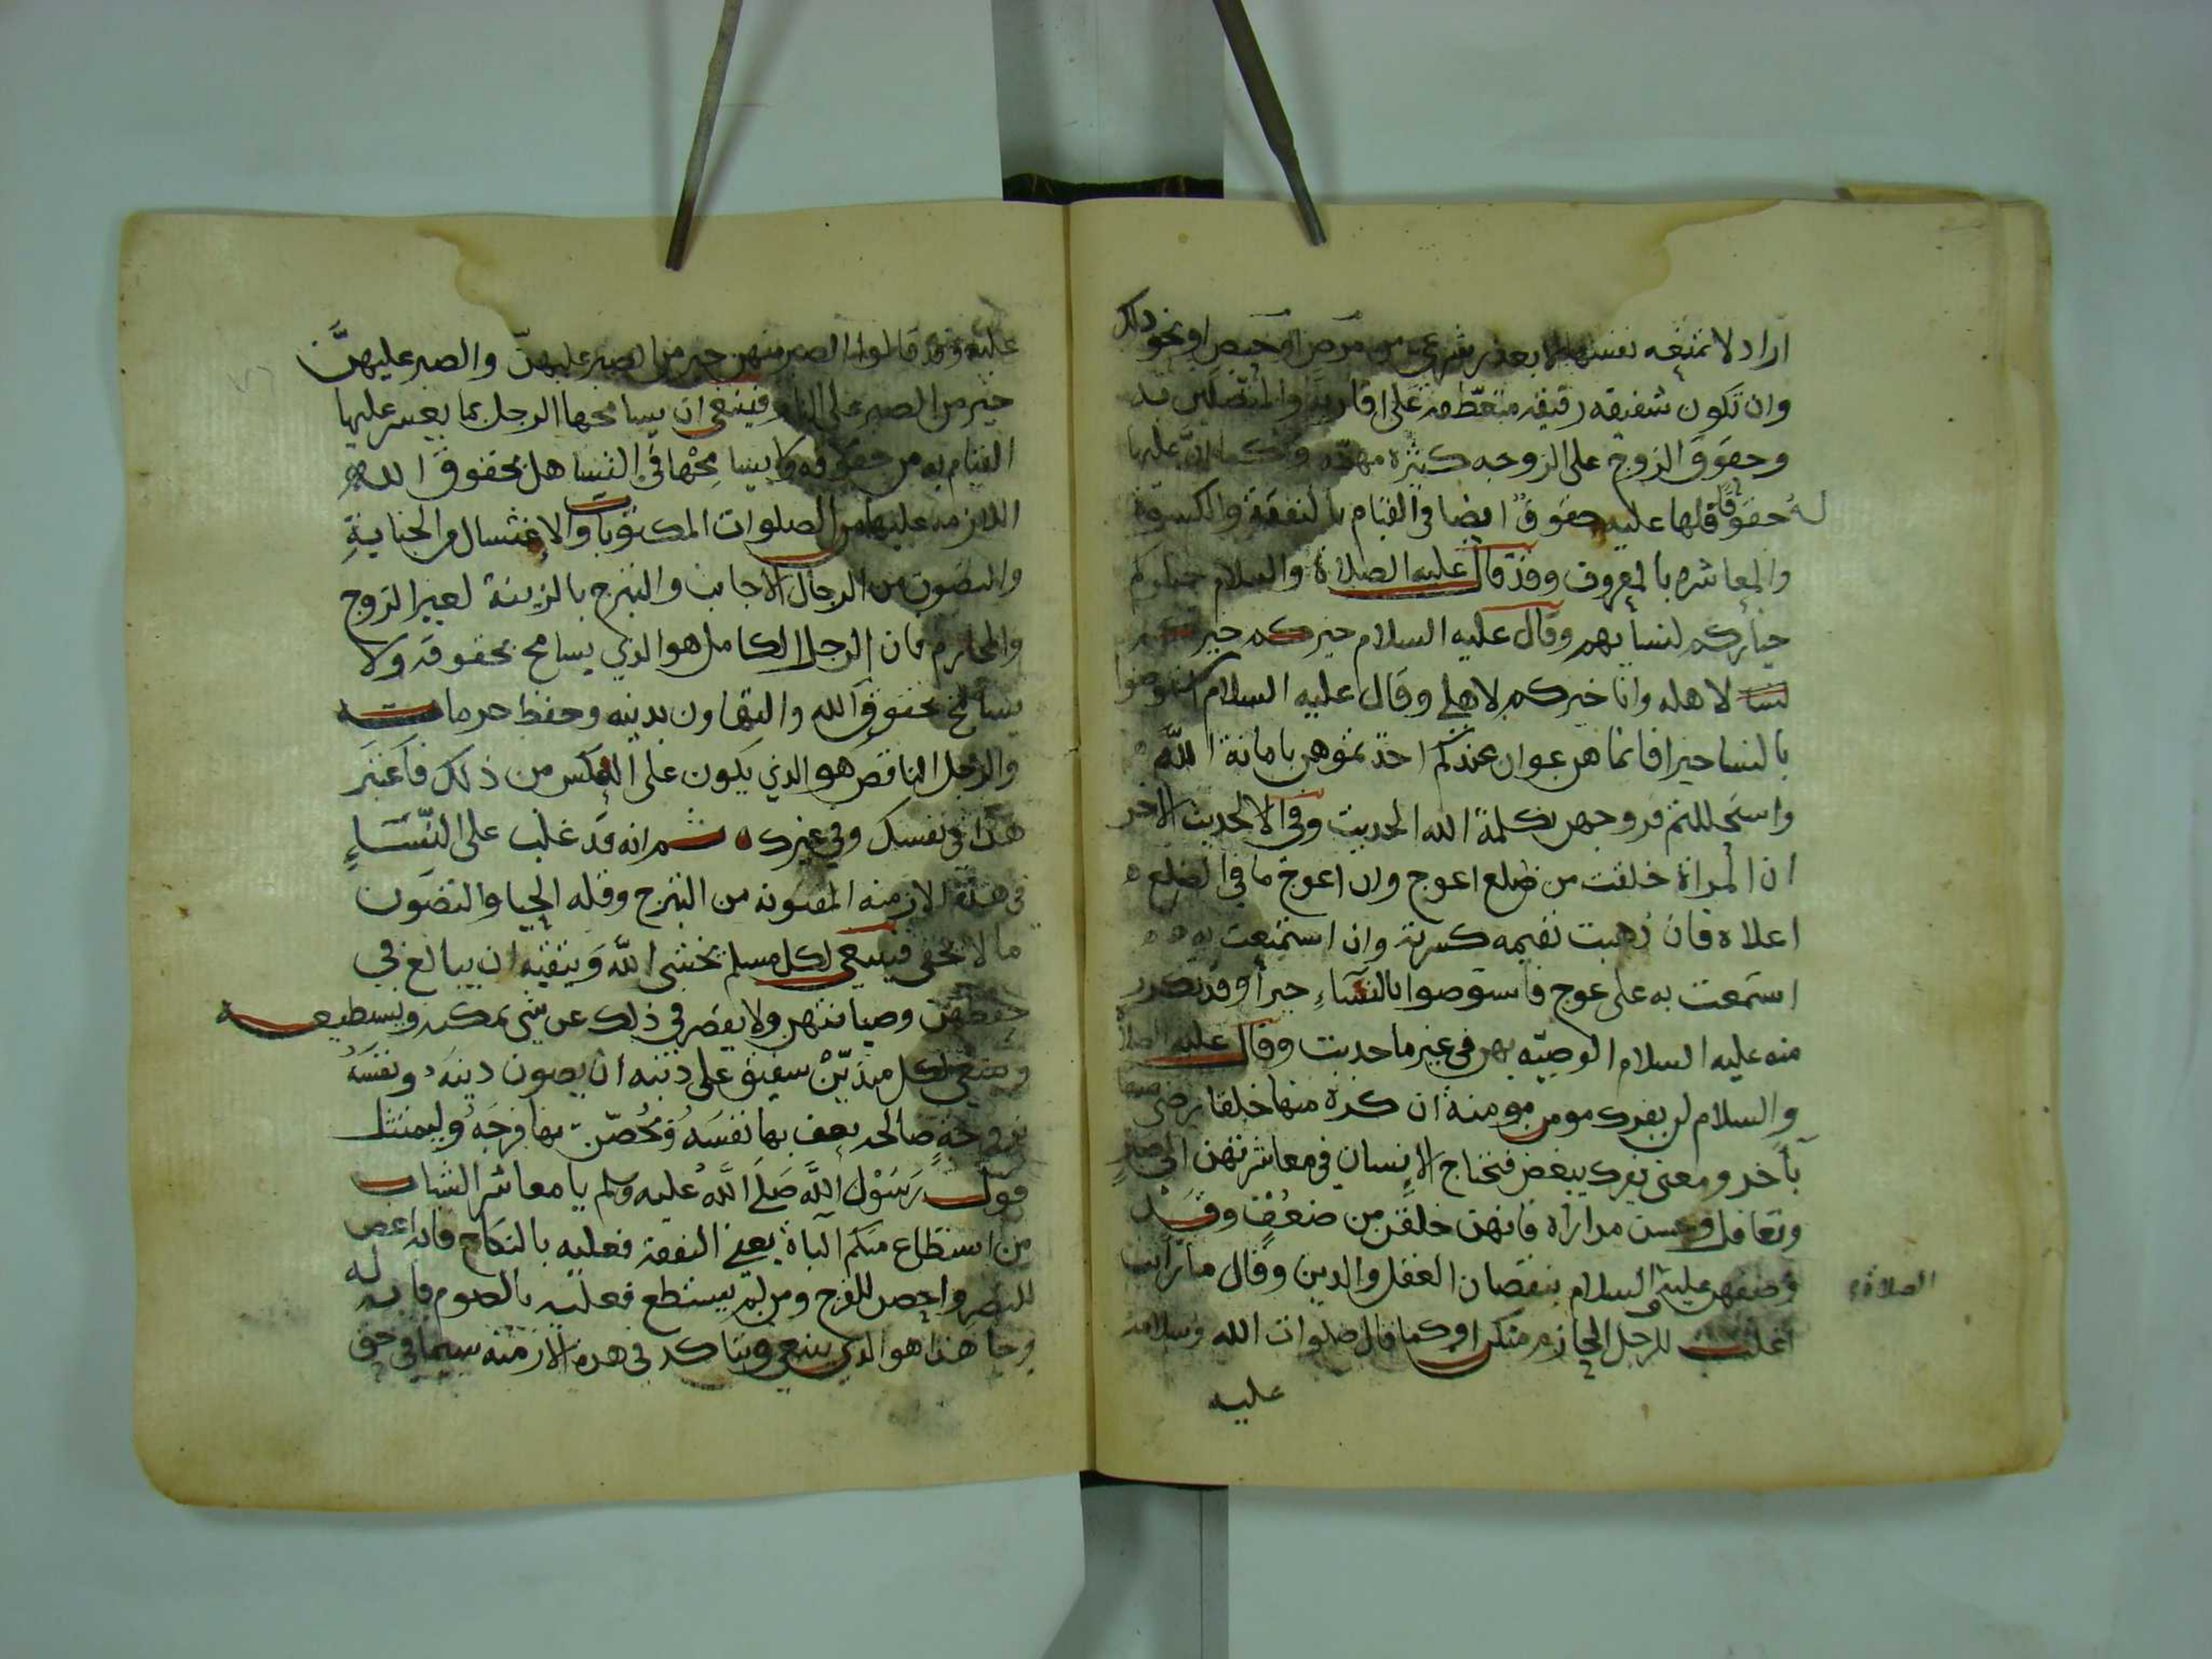 اراد لا تمنعه نفسها الا بعذر شرعي من مرض او حيض او نحو ذلك
وان تكون شفيقه رفيقه متعطفه على اقاربه والمتصلين به
وحقوق الزوج على الزوجه كثيره مهمه وكما ان عليها
له حقوقا فلها عليه حقوق ايضا في القيام بالنفقة والكسوة
والمعاشره بالمعروف وقد قال عليه الصلاة والسلام خياركم
خياركم لنسايهم وقال عليه السلام خيركم خيركم
لاهله وانا خيركم لاهلي وقال عليه السلام استوصوا
بالنسا خيرا فانما هن عوان عندكم اخذتموهن بامانة الله
واستحللتم فروجهن بكلمة الله الحديث وفي الحديث الاخر
ان المراة خلقت من ضلع اعوج وان اعوج ما في الضلع
اعلاه فان ذهبت تقيمه كسرته وان استمتعت به
استمتعت به على عوج فاستوصوا بالنساء خيرا وقد تكرر
منه عليه السلام الوصيه بهن في غير ما حديث وقال عليه الصلاة
والسلام لن يفرك مومن مومنة ان كره منها خلقا رضي منها
بآخر ومعنى يفرك يبغض فيحتاج الانسان في معاشرتهن الى صبر
وتغافل وحسن مداراه فانهن خلقن من ضعف وقد
وصفهن عليه السلام بنقصان العقل والدين وقال ما رايت
الصلاة
اغلب للرجل الحازم منكن او كما قال صلوات الله وسلامه
عليه
عليه وقد قالوا الصبر منهن خير من الصبر عليهن والصبر عليهن
خير من الصبر على النار فينبغي ان يسامحها الرجل بما يعسر عليها
القيام به من حقوقه ولا يسامحها في التساهل بحقوق الله
اللازمه عليها من الصلوات المكتوبات والاغتسال من الجنابة
والتصون من الرجال الاجانب والتبرج بالزينة لغير الزوج
والمحارم فان الرجل الكامل هو الذي يسامح بحقوقه ولا
يسامح بحقوق الله والتهاون بدينه وحفظ حرماته
والرجل الناقص هو الذي يكون على العكس من ذلك فاعتبر
هذا في نفسك وفي غيرك ثم انه قد غلب على النساء
في هذه الازمنه المفتونه من التبرج وقله الحيا والتصون
ما لا يخفى فينبغي لكل مسلم يخشى الله ويتقيه ان يبالغ في
حفظهن وصيانتهن ولا يقصر في ذلك عن شي يمكنه ويستطيعه
وينبغي لكل متدين شفيق على دينه ان يصون دينه ونفسه
بزوجة صالحه يعف بها نفسه ويحصن بها فرجه وليمتثل
قول رسول الله صلى الله عليه وسلم يا معاشر الشباب
من استطاع منكم الباة يعني النفقة فعليه بالنكاح فانه اغض
للبصر واحصن للفرج ومن لم يستطع فعليه بالصوم فانه له
وجا هذا هو الذي ينبغي ويتاكد في هذه الازمنه سيما في حق